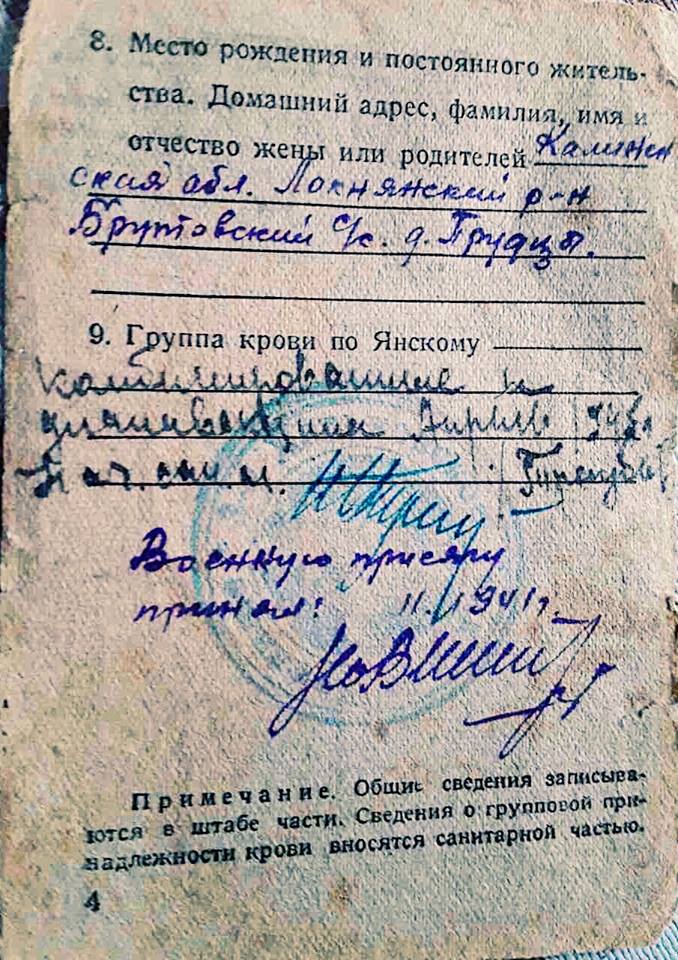 8. Место рождения и постоянного житель-
ства. Домашний адрес, фамилия, имя и
отчество жены или родителей Калинин
ская обл. Локнянский р-н
Брутовский с/с. д. Грудцы.
9. Группа крови по Янскому
Апрель
Нач. сан.
Военную присягу
принял: 11. 1941 г.
Примечание. Общие сведения записыва-
ются в штабе части. Сведения о групповой при-
надлежности крови вносятся санитарной частью.
4